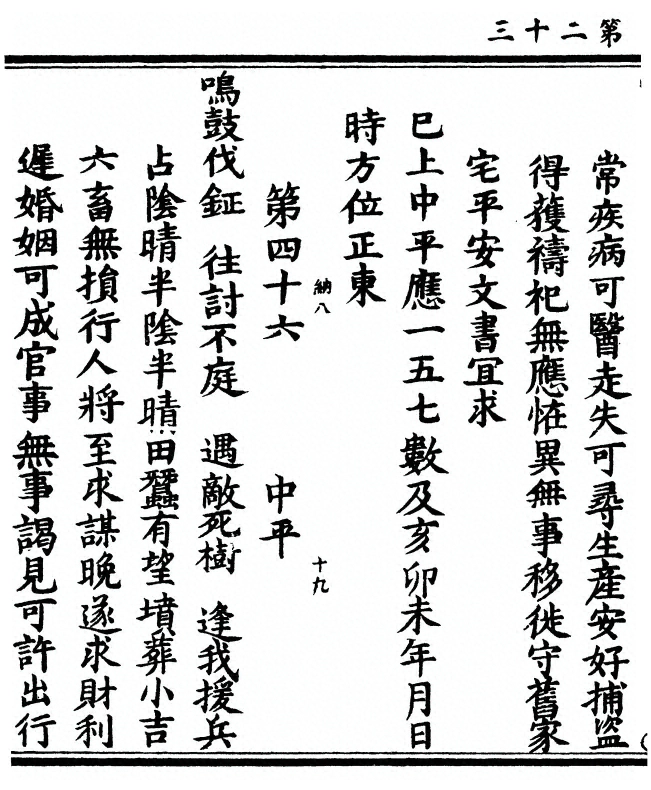 第二十三
常疾病可醫走失可尋生產安好捕盜
得獲禱祀無應恠異無事移徙守舊家
宅平安文書冝求
巳上中平應一五七數及亥卯未年月日
時方位正東
納八
十九
第四十六 中平
鳴鼓伐鉦 往討不庭 遇敵死樹 逢我援兵
占陰晴半陰半晴田蠶有望墳葬小吉
六畜無損行人將至求謀晚遂求財利
遲婚姻可成官事無事謁見可許出行